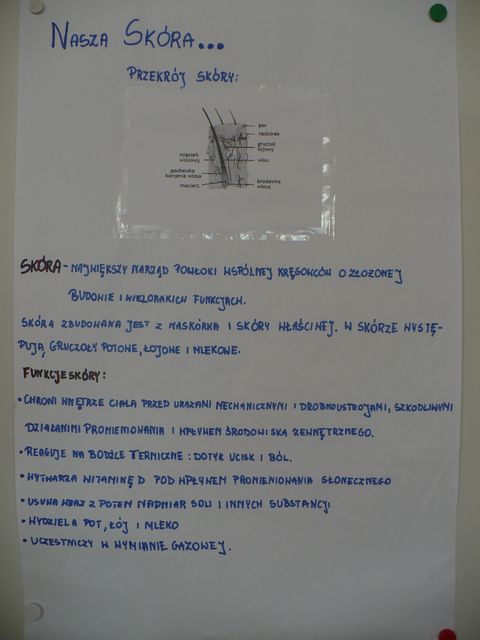 NASZA SKÓRA...
PRZEKRÓJ SKÓRY:
por
naskórek
gruczoł
łojowy
mięsień
włosowy
włos
pochewka
korzenia włosa
macierz
brodawka
włosa
SKÓRA - NAJWIĘKSZY NARZĄD POWŁOKI WSPÓLNEJ KRĘGOWCÓW O ZŁOŻONEJ
BUDOWIE I WIELORAKICH FUNKCJACH.
SKÓRA ZBUDOWANA JEST Z NASKÓRKA I SKÓRY WŁAŚCIWEJ. W SKÓRZE WYSTĘ-
PUJĄ GRUCZOŁY POTOWE, ŁOJOWE I MLEKOWE.
FUNKCJE SKÓRY:
• CHRONI WNĘTRZE CIAŁA PRZED URAZAMI MECHANICZNYMI I DROBNOUSTROJAMI, SZKODLIWYMI
DZIAŁANIAMI PROMIENIOWANIA I WPŁYWEM ŚRODOWISKA ZEWNĘTRZNEGO.
• REAGUJE NA BODŹCE TERMICZNE: DOTYK UCISK I BÓL.
• WYTWARZA WITAMINĘ D POD WPŁYWEM PROMIENIOWANIA SŁONECZNEGO
• USUWA WRAZ Z POTEM NADMIAR SOLI I INNYCH SUBSTANCJI
• WYDZIELA POT, ŁÓJ I MLEKO
• UCZESTNICZY W WYMIANIE GAZOWEJ.